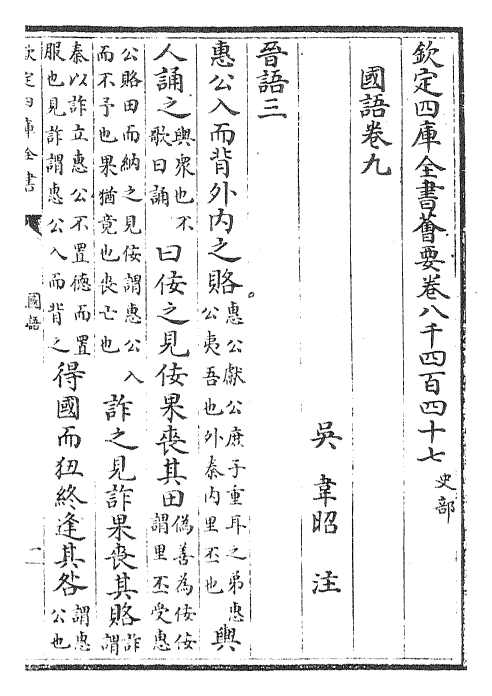 欽定四庫全書薈要卷八千四百四十七 史部
國語卷九
吳 韋昭 注
晉語三
惠公入而背外内之賂惠公獻公庶子重耳之弟惠公夷吾也外秦内里丕也輿
人誦之輿衆也不歌曰誦曰佞之見佞果喪其田偽善為佞佞謂里丕受惠
公賂田而納之見佞謂惠公入而不予也果猶竟也喪亡也詐之見詐果喪其賂詐謂
秦以詐立惠公不置德而置服也見詐謂惠公入而背之得國而狃終逢其咎謂惠公也
欽定四庫全書
國語
一